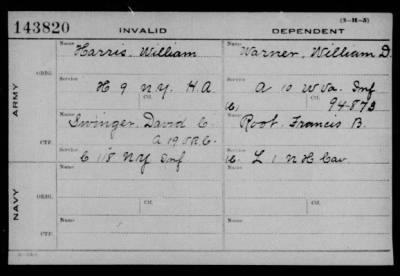 143820 INVALID DEPENDENT (3-H-5)
Name Name
Harris, William Warner, William D.
ARMY
ORIG. Service Service
H 9 N.Y. H.A. A 10 W Va. Inf
Ctf. Ctf. 94873
Name Name
Swinger, David C. Root, Francis B.
A 19
CTF. Service Service
C 118 NY Inf L 1 N H Cav
NAVY
Name Name
ORIG. Ctf. Ctf.
Name Name
CTF.